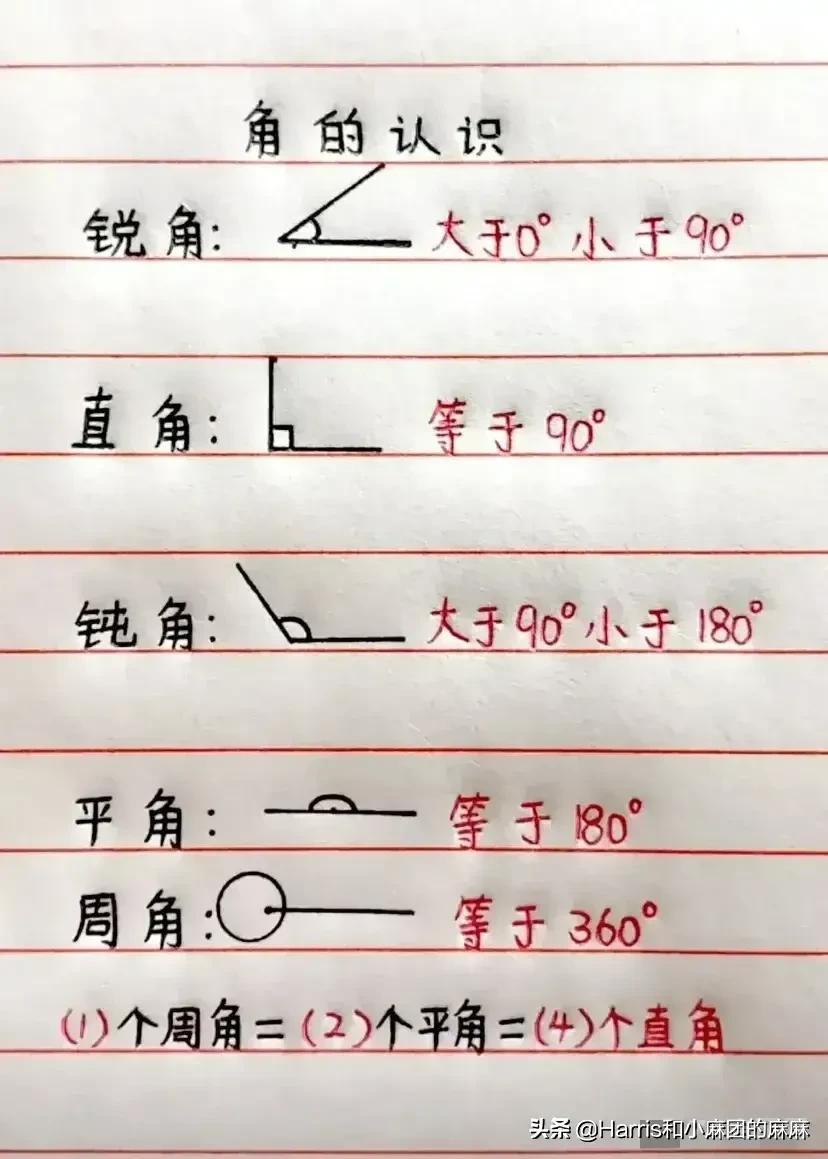 角的认识
锐角: 大于0° 小于90°
直角: 等于90°
钝角: 大于90°小于180°
平角: 等于180°
周角: 等于360°
(1)个周角=(2)个平角=(4)个直角
头条 @Harris和小麻团的麻麻